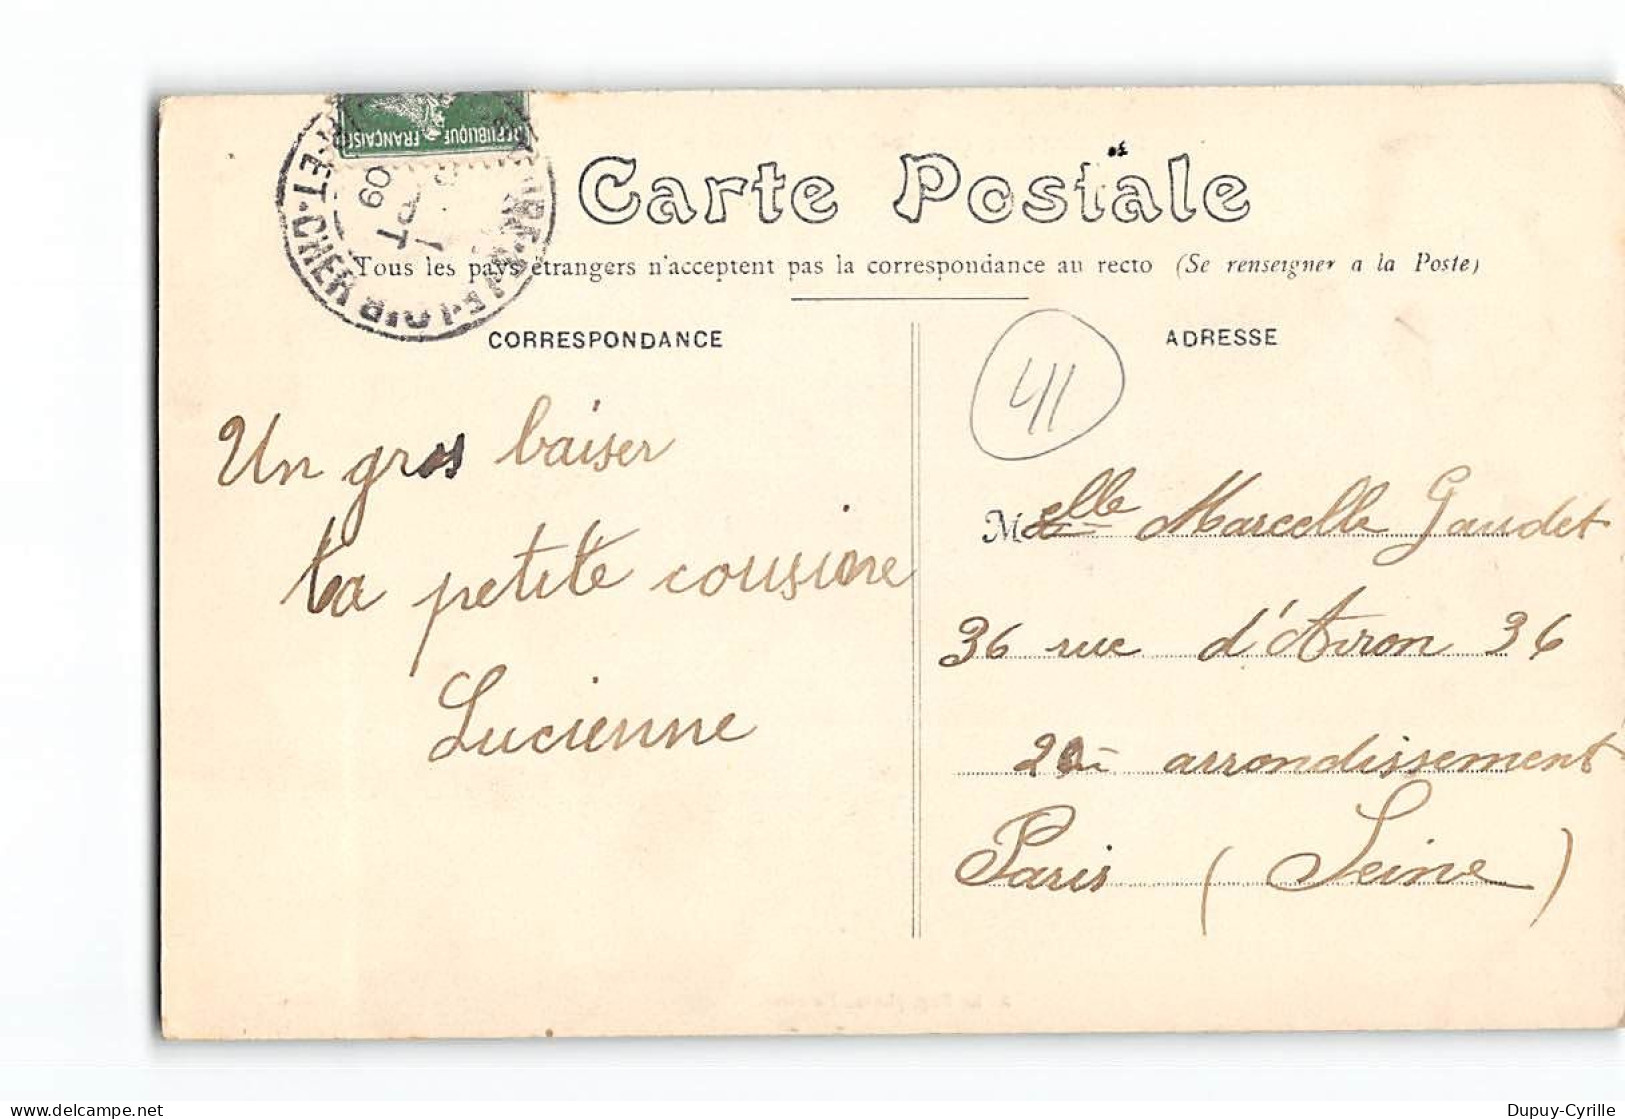 RÉPUBLIQUE FRANÇAISE
ET-CHER
09
Carte Postale
Tous les pays étrangers n'acceptent pas la correspondance au recto (Se renseigner a la Poste)
CORRESPONDANCE
ADRESSE
41
Un gros baiser
ta petite cousine
Lucienne
Melle Marcelle Gaudet
36 rue d'Avron 36
20e arrondissement
Paris (Seine)
Dupuy-Cyrille